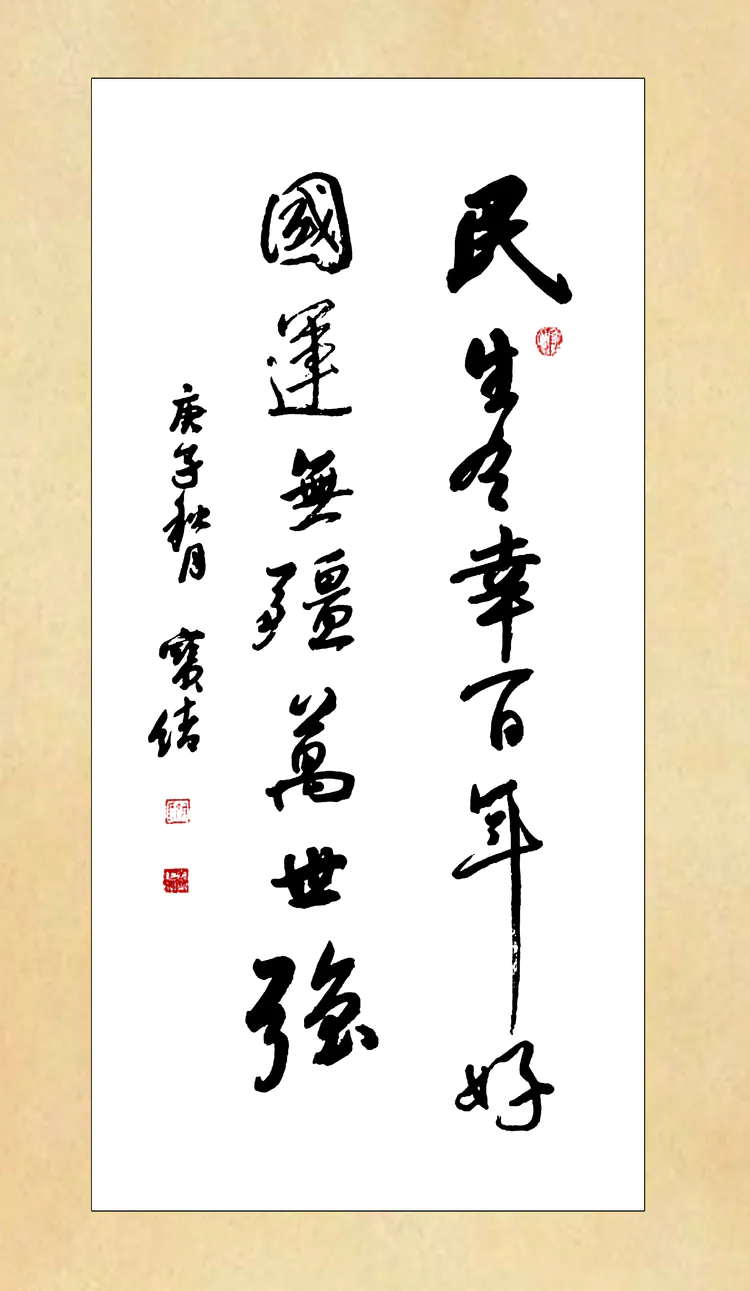 民生今幸百年好
國運無疆萬世強
庚子秋月 寶結